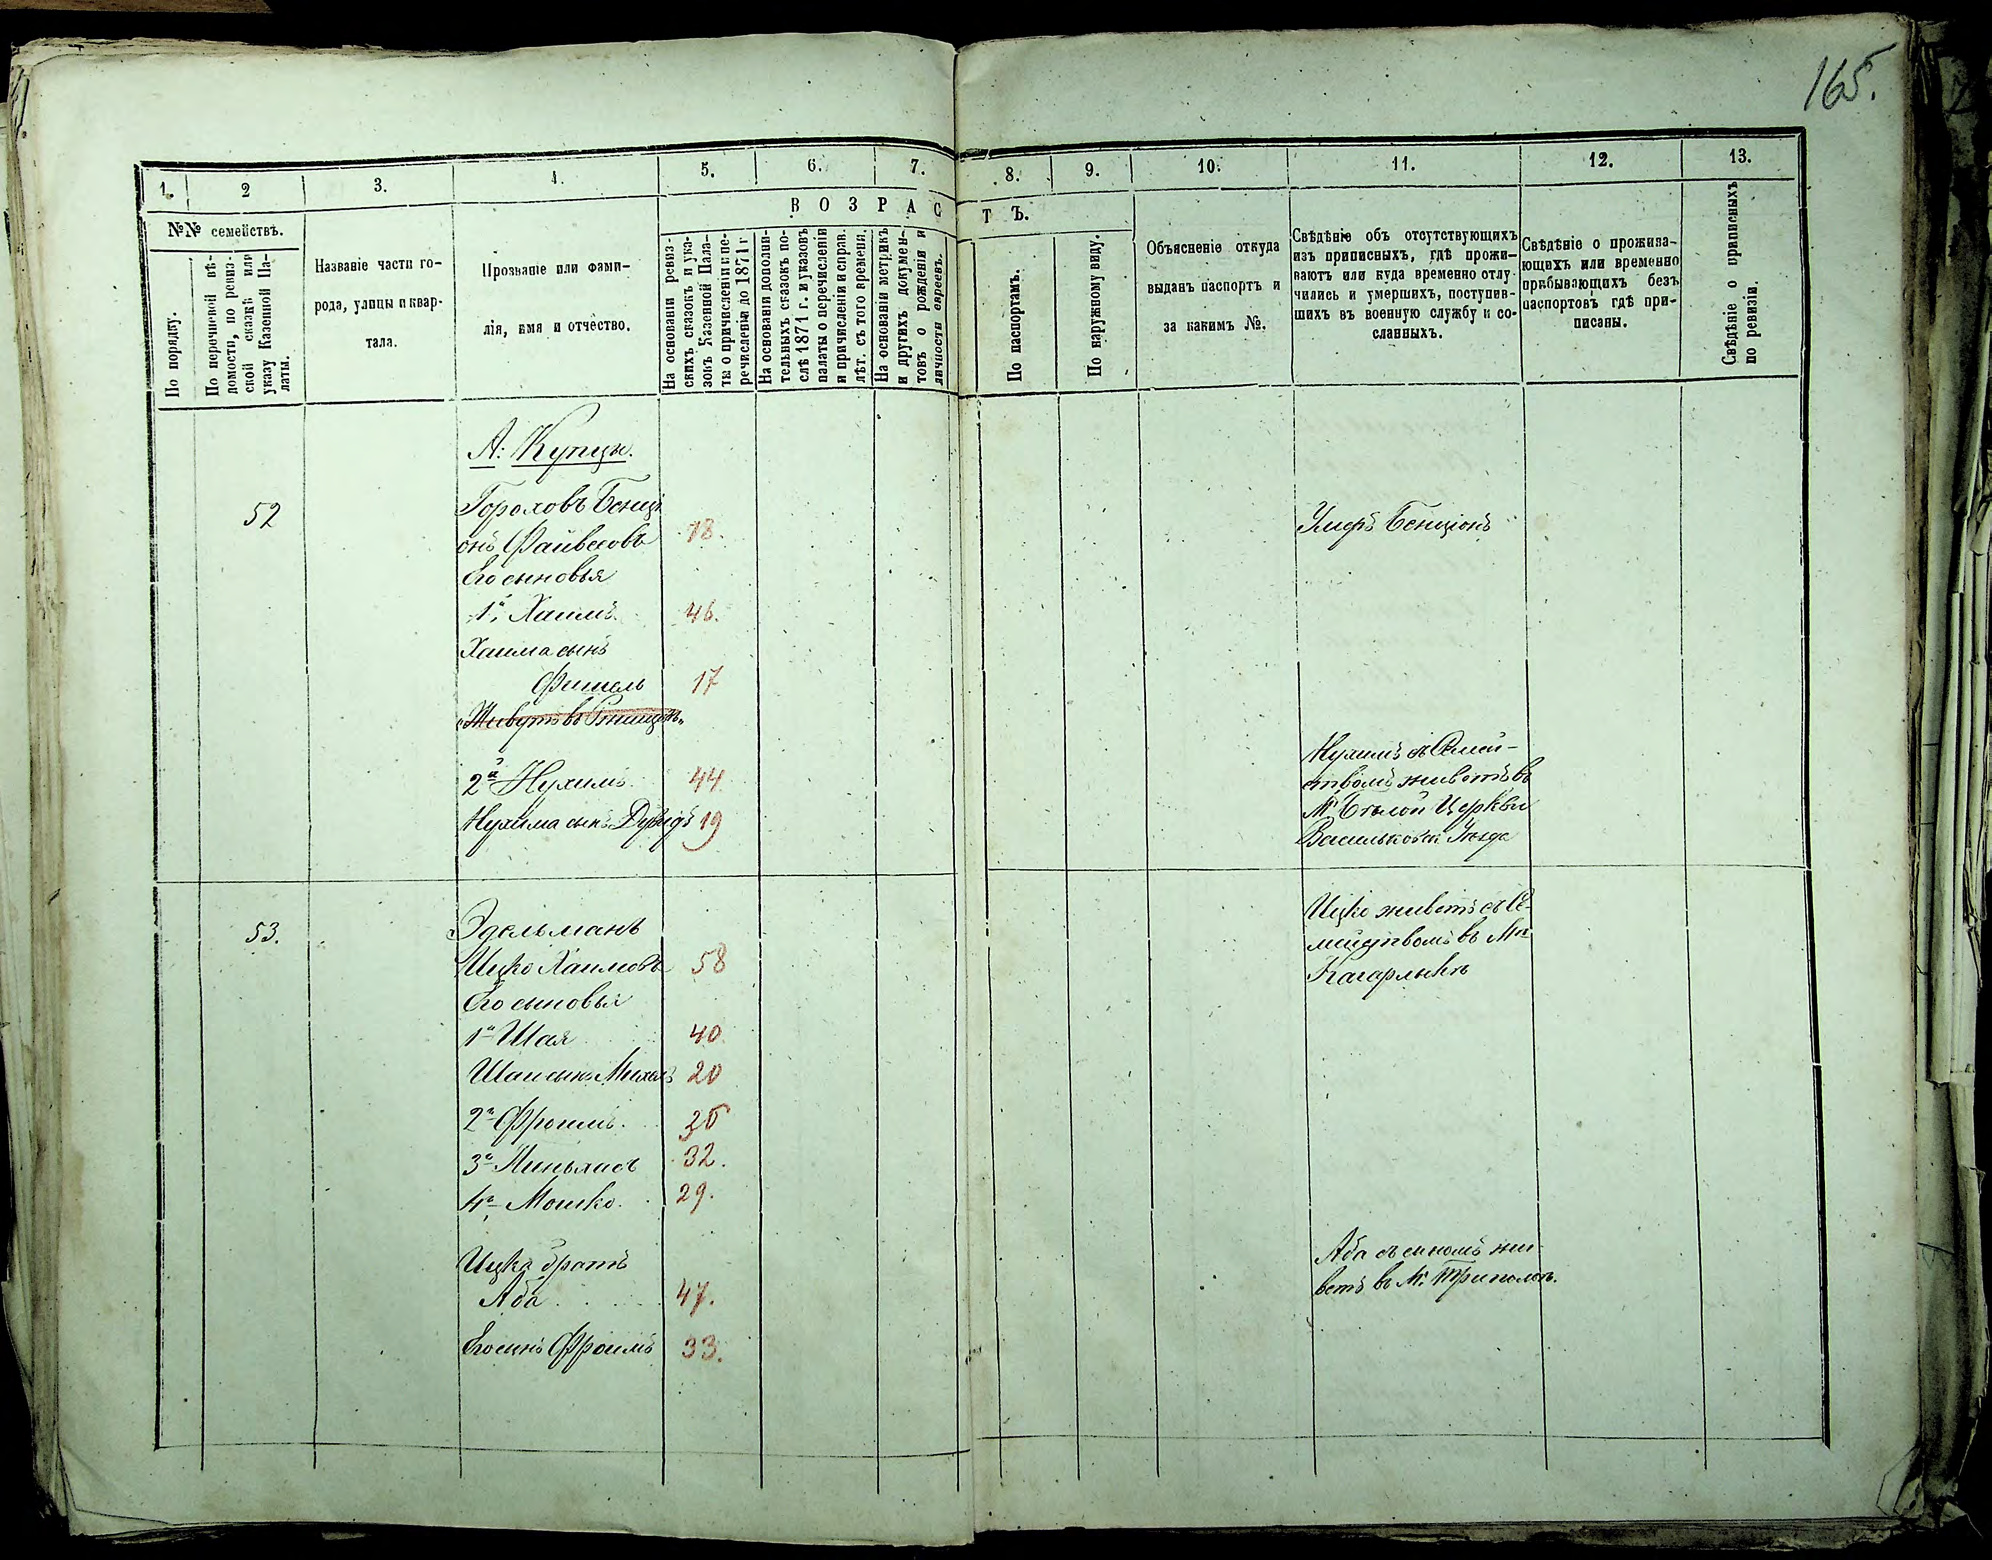 165.
1. 2 3. 4. 5. 6. 7. 8. 9. 10. 11. 12. 13.
№№ семействъ.
По порядку.
По перечневой вѣ-
домости, по ревиз-
ской сказкѣ или
указу Казенной Па-
латы.
Названіе части го-
рода, улицы и квар-
тала.
Прозваніе или фами-
лія, имя и отчество.
ВОЗРАСТЪ.
На основаніи ревиз-
скихъ сказокъ и ука-
зокъ Казенной Пала-
ты о причисленіи и пе-
речисленіи до 1871 г.
На основаніи дополни-
тельныхъ сказокъ по-
слѣ 1871 г. и указовъ
палаты о перечисленіи
и причисленіи и справ.
лѣт. съ того времени.
На основаніи метрикъ
и другихъ докумен-
товъ о рожденіи и
личности евреевъ.
По паспортамъ.
По наружному виду.
Объясненіе откуда
выданъ паспортъ и
за какимъ №.
Свѣдѣніе объ отсутствующихъ
изъ приписныхъ, гдѣ прожи-
ваютъ или куда временно отлу-
чились и умершихъ, поступив-
шихъ въ военную службу и со-
сланныхъ.
Свѣдѣніе о прожива-
ющихъ или временно
прибывающихъ безъ
паспортовъ гдѣ при-
писаны.
Свѣдѣніе о приписныхъ
по ревизіи.
А: Купцы.
52 Гороховъ Бенци
онъ Файвеловъ 78. Умеръ Бенціонъ
Его сыновья
1й Хаимъ 46.
Хаима сынъ
Фишель 17
Живутъ въ Ржищевѣ
2й Нухимъ 44
Нухима сынъ Дувидъ 19
Нухимъ съ Семей-
ствомъ живетъ въ
М. Бѣлой Церкви
Васильков. Уѣзда
53. Эдельманъ
Ицко Хаимовъ 58
Его сыновья
1й Шая 40
Шаи сынъ Михель 20
2й Фроимъ 36
3й Пиньхасъ 32.
4й Мошко 29.
Ицко живетъ съ Се-
мействомъ въ Мѣ
Кагарлыкѣ
Ицка братъ
Аба 47.
Его сынъ Фроимъ 33.
Аба съ сыномъ жи-
ветъ въ М. Триполѣ.